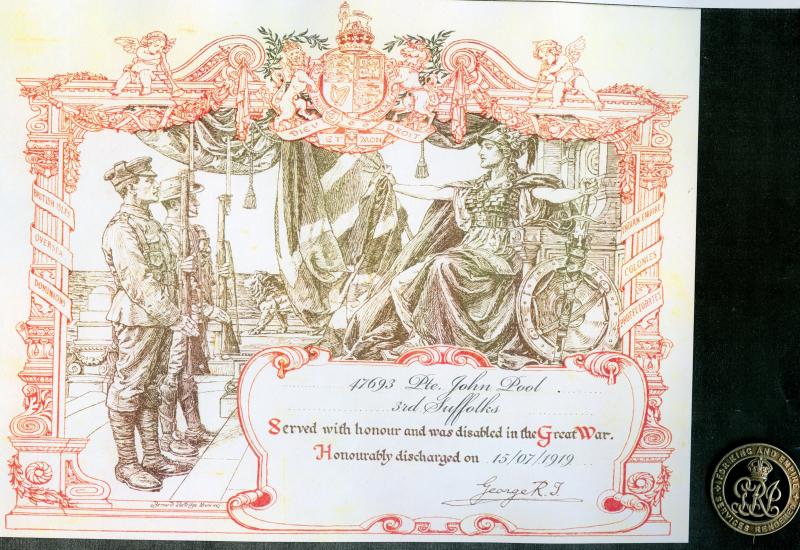 DIEU ET MON DROIT
BRITISH ISLES
OVERSEA
DOMINIONS
INDIAN EMPIRE
COLONIES
PROTECTORATES
47693 Pte. John Pool
3rd Suffolks
Served with honour and was disabled in the Great War.
Honourably discharged on 15/07/1919
George R.I.
FOR KING AND EMPIRE
SERVICES RENDERED